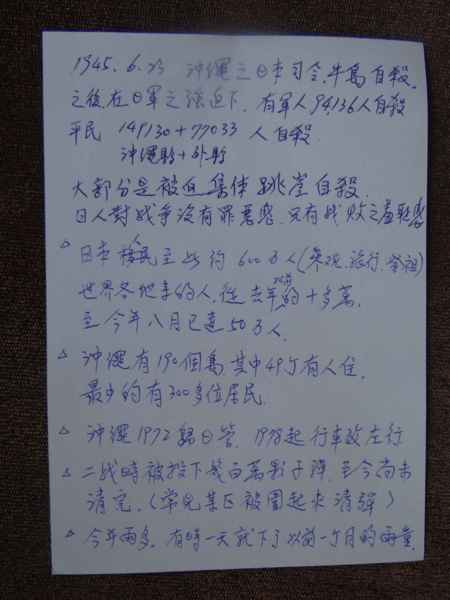 1945.6.23 沖繩之日本司令牛島自殺.
之後, 在日軍之強迫下, 有軍人94,136人自殺
平民 149130+77033 人自殺
沖繩縣+外縣
大部分是被迫集体跳崖自殺.
日人對战爭沒有罪惡感, 只有战敗之羞耻感
△ 日本移民至此約600万人(參观.旅行.祭祖)
世界各地來的人, 從去年的十多萬,
至今年八月已達50万人.
△ 沖繩有190個島, 其中49个有人住,
最少的有300多位居民.
△ 沖繩1972歸日管. 1978起行車改左行
△ 二战時被投下幾百萬影子彈, 至今尚未
清完. (常見某区被圍起來清彈)
△ 今年雨多, 有時一天就下了以前一个月的雨量.